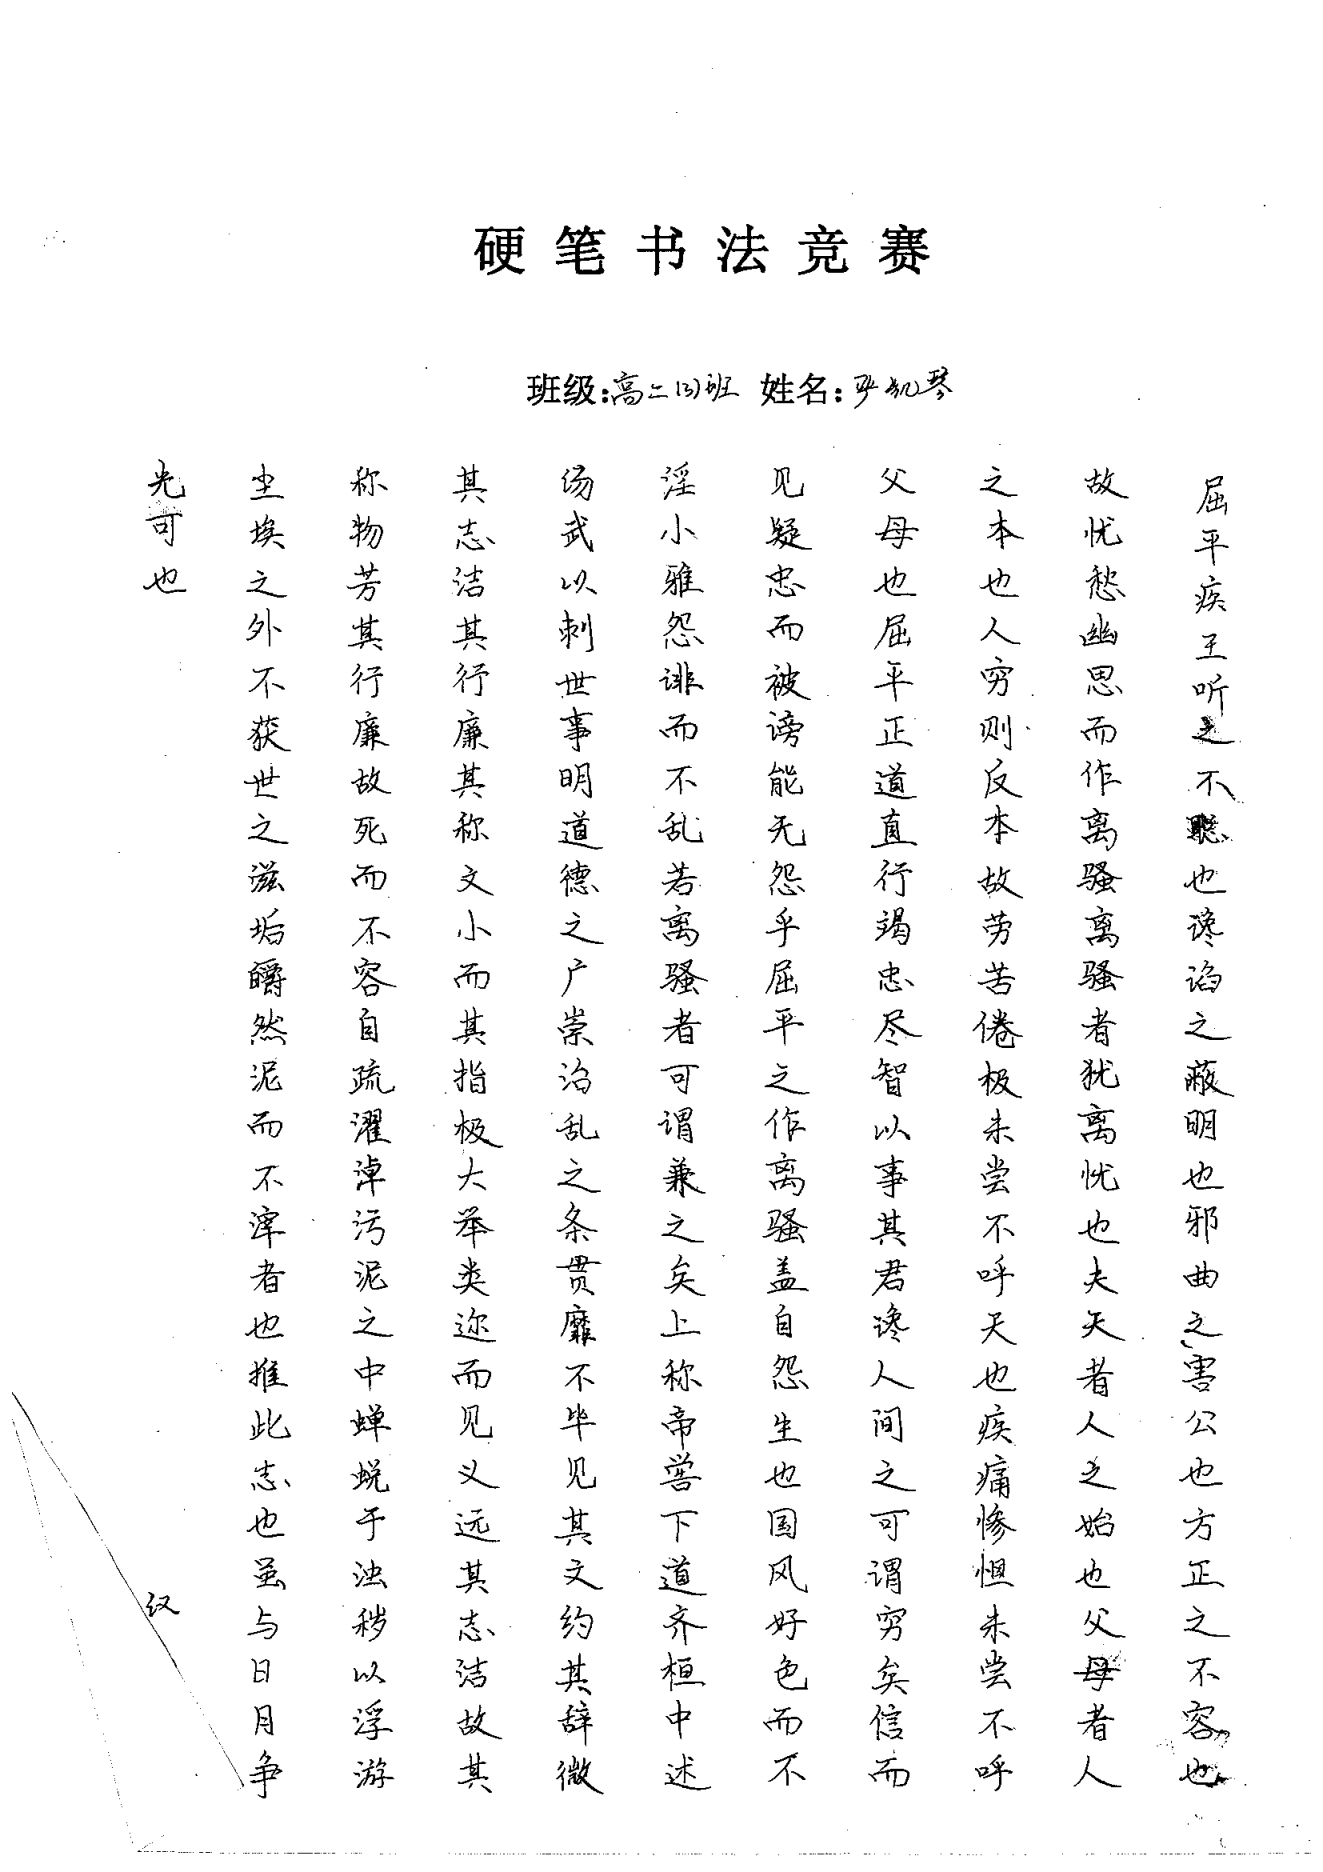 硬笔书法竞赛
班级:高二(3)班 姓名:严凯琴
屈平疾王听之不聪也谗谄之蔽明也邪曲之害公也方正之不容也
故忧愁幽思而作离骚离骚者犹离忧也夫天者人之始也父母者人
之本也人穷则反本故劳苦倦极未尝不呼天也疾痛惨怛未尝不呼
父母也屈平正道直行竭忠尽智以事其君谗人间之可谓穷矣信而
见疑忠而被谤能无怨乎屈平之作离骚盖自怨生也国风好色而不
淫小雅怨诽而不乱若离骚者可谓兼之矣上称帝喾下道齐桓中述
汤武以刺世事明道德之广崇治乱之条贯靡不毕见其文约其辞微
其志洁其行廉其称文小而其指极大举类迩而见义远其志洁故其
称物芳其行廉故死而不容自疏濯淖污泥之中蝉蜕于浊秽以浮游
尘埃之外不获世之滋垢皭然泥而不滓者也推此志也虽与日月争
光可也